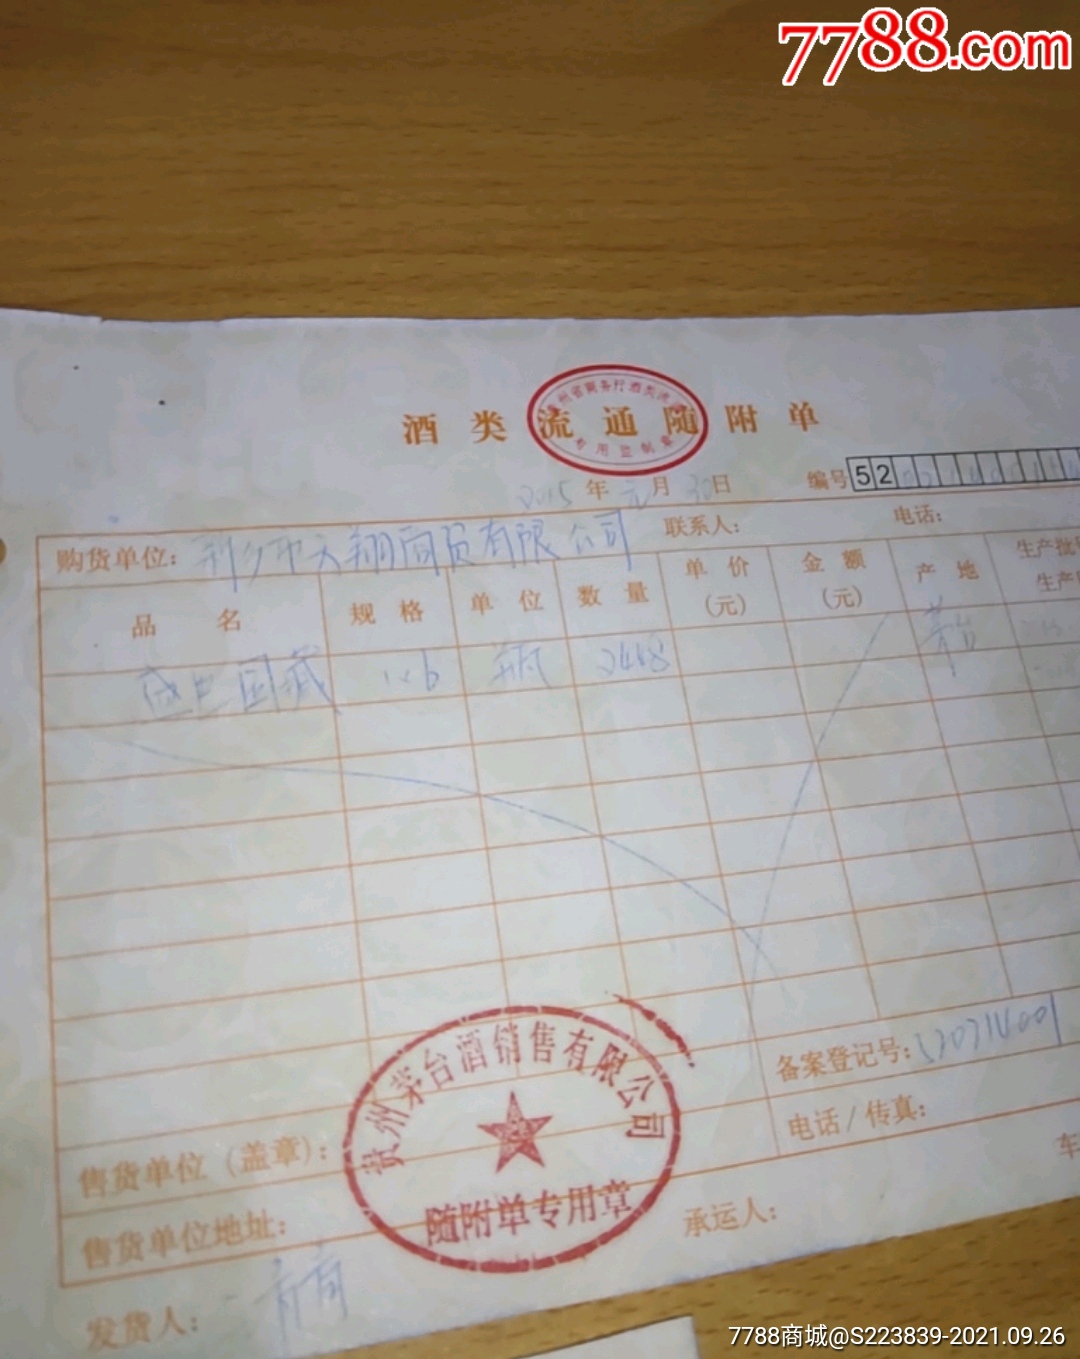 7788.com
酒类流通随附单
贵州省商务厅酒类流
专用监制章
2015年元月30日
编号52
购货单位：新乡市天翔商贸有限公司
联系人：
电话：
品名 规格 单位 数量 单价(元) 金额(元) 产地 生产批号
生产
盛世国藏 1×6 瓶 2468 茅台
备案登记号：
售货单位（盖章）：
电话/传真：
贵州茅台酒销售有限公司
随附单专用章
售货单位地址：
承运人：
车
发货人：
7788商城@S223839-2021.09.26